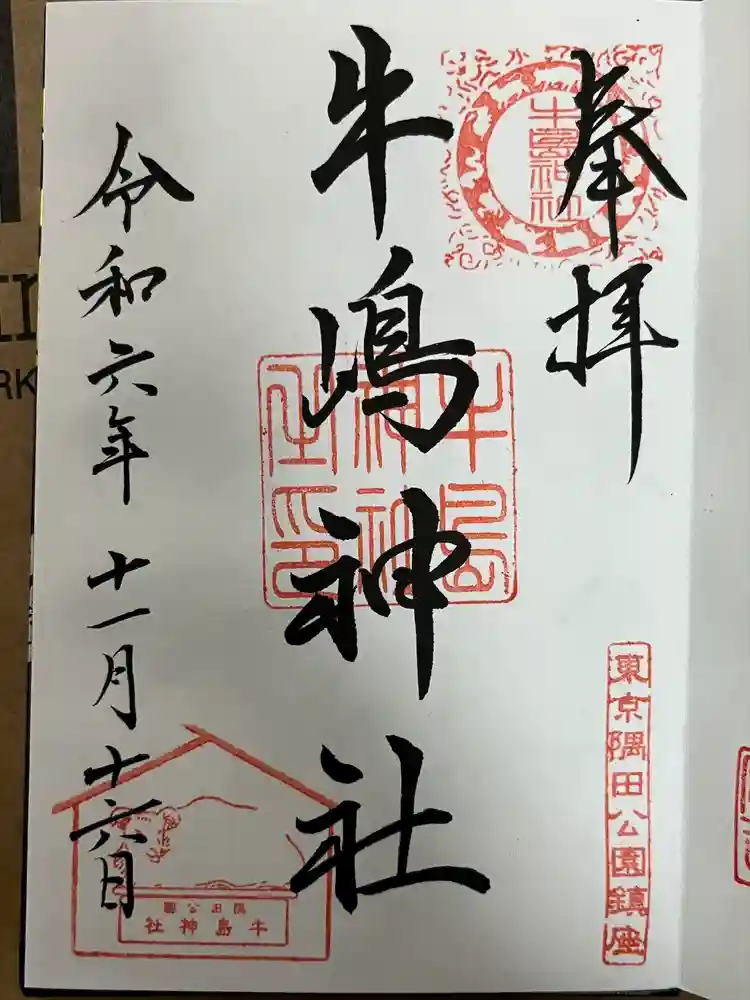 奉拝
牛島神社
東京隅田公園鎮座
牛嶋神社
牛島神社之印
令和六年 十一月十六日
隅田公園
牛島神社
RK